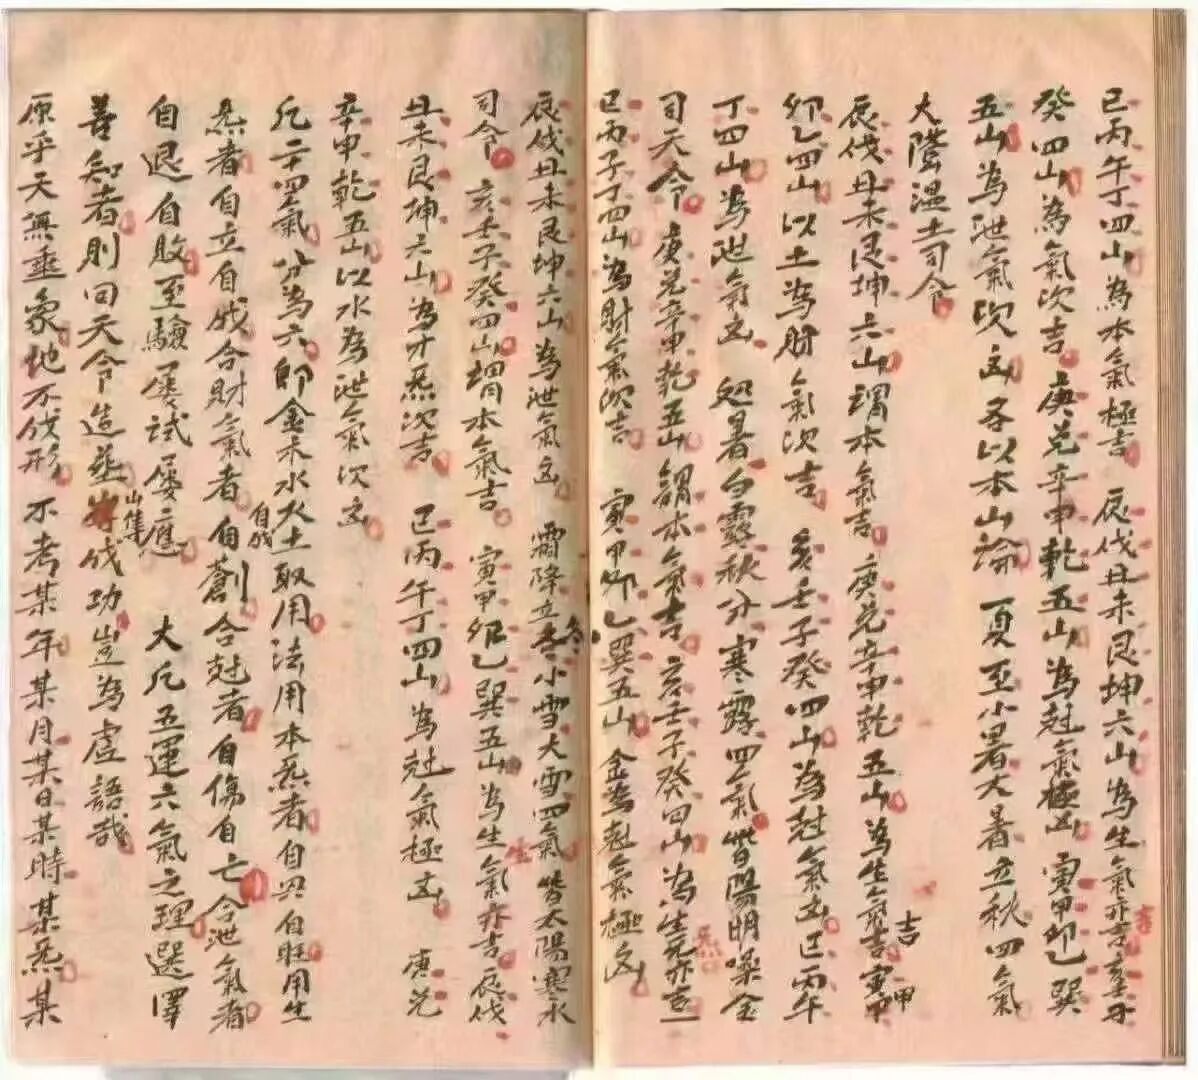 巳丙午丁四山為本氣極吉 辰戌丑未艮坤六山為生氣亦吉亥壬子
癸四山為氣次吉 庚兑辛申乾五山為尅氣極凶 寅甲卯乙巽
五山為泄氣次凶 各以本山論 夏至小暑大暑立秋四氣
大隂溫土司令
辰戌丑未艮坤六山謂本氣吉 庚兑辛申乾五山為生氣吉寅甲
卯乙四山以土為財氣次吉 亥壬子癸四山為尅氣凶巳丙午
丁四山為泄氣凶 処暑白露秋分寒露四氣皆陽明噪金
司天令 庚兑辛申乾五山謂本氣吉 亥壬子癸四山為生炁亦吉
巳丙子丁四山為財氣次吉 寅甲卯乙巽五山金為尅氣極凶
辰戌丑未艮坤六山為泄氣凶 霜降立冬小雪大雪四氣皆太陽寒水
司令 亥壬子癸四山謂本氣吉 寅甲卯乙巽五山為生氣亦吉辰戌
丑未艮坤六山為才炁次吉 巳丙午丁四山為尅氣極凶 庚兑
辛申乾五山以水為泄氣次凶
凡二十四氣分為六 即金木水火土取用法用本炁者自興自旺用生
炁者自立自成合財氣者自創自成合尅者自傷自亡合泄氣者
自退自敗至驗屡試屡應 大凡五運六氣之理選擇
善知者則回天令造葬山集成功豈為虚語哉
原乎天無垂象地不成形 不考某年某月某日某時某炁某